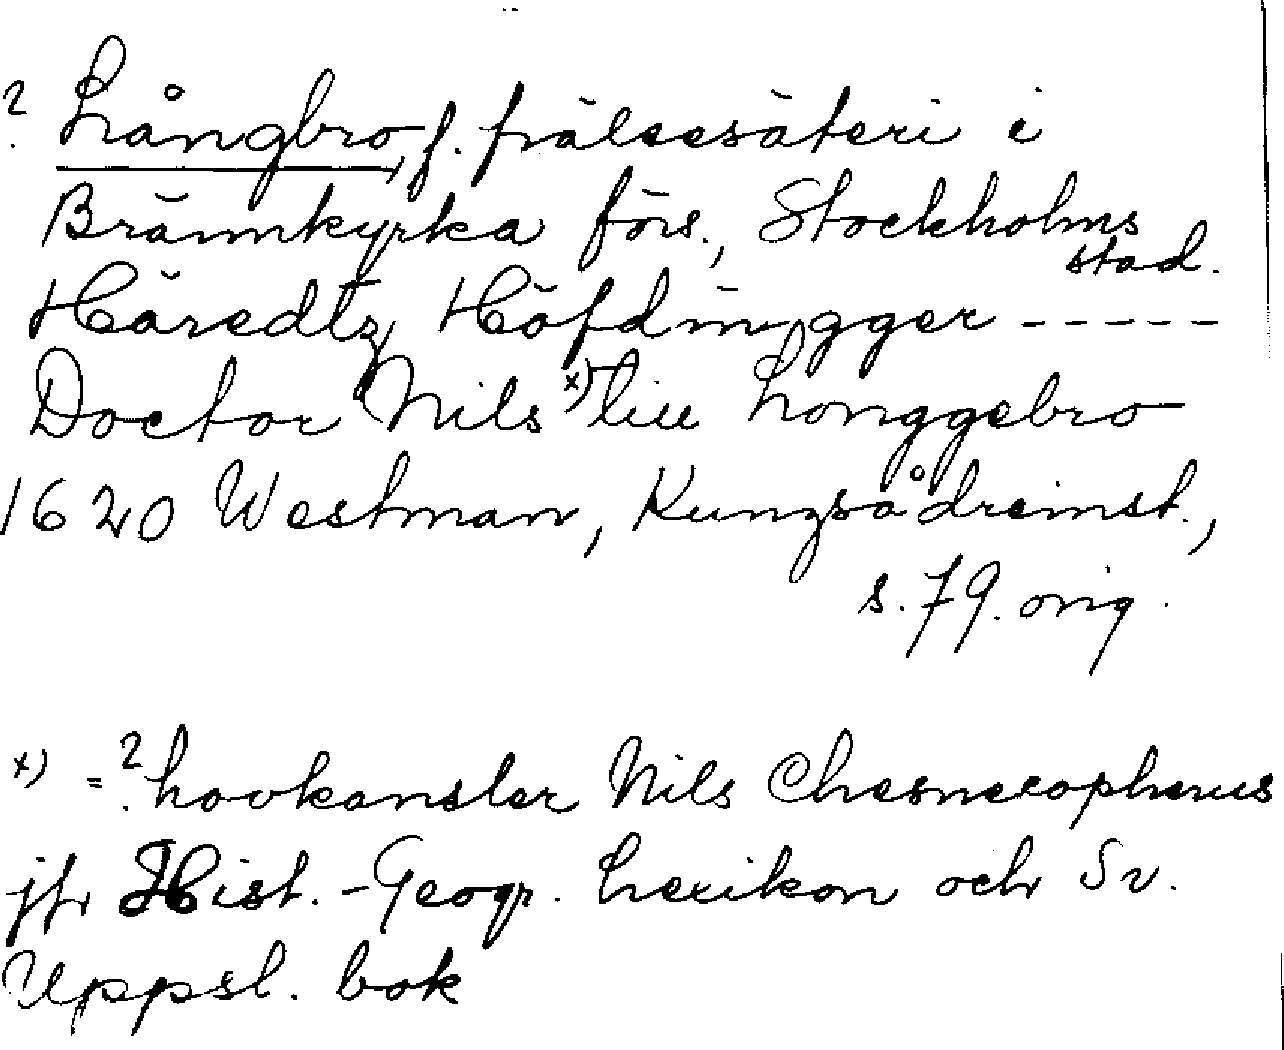 ? Långbro, f. frälsesäteri i
Brännkyrka förs., Stockholms
stad.
Häredtz Höfdinngger -----
Doctor Nils x) till Longgebro
1620 Westman, Kungsådreinst.,
s. 79. orig.
x) = ? hovkansler Nils Chesnecopherus
jfr Hist.-Geogr. Lexikon och Sv.
Uppsl. bok